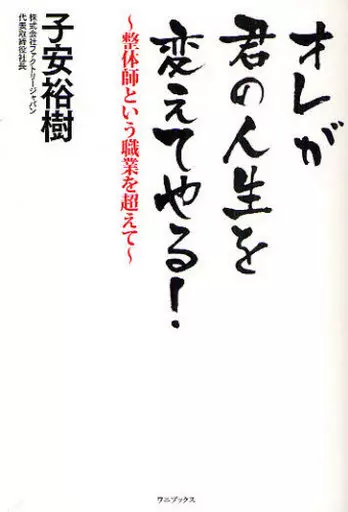 オレが
君の人生を
変えてやる!
〜整体師という職業を超えて〜
株式会社ファクトリージャパン
代表取締役社長
子安裕樹
ワニブックス